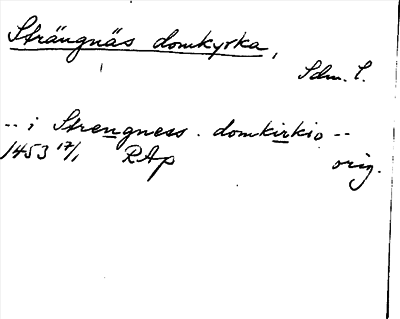 Strängnäs domkyrka,
Sdm. l.
-- i Strengness domkirkio --
1453 17/1 RAp orig.